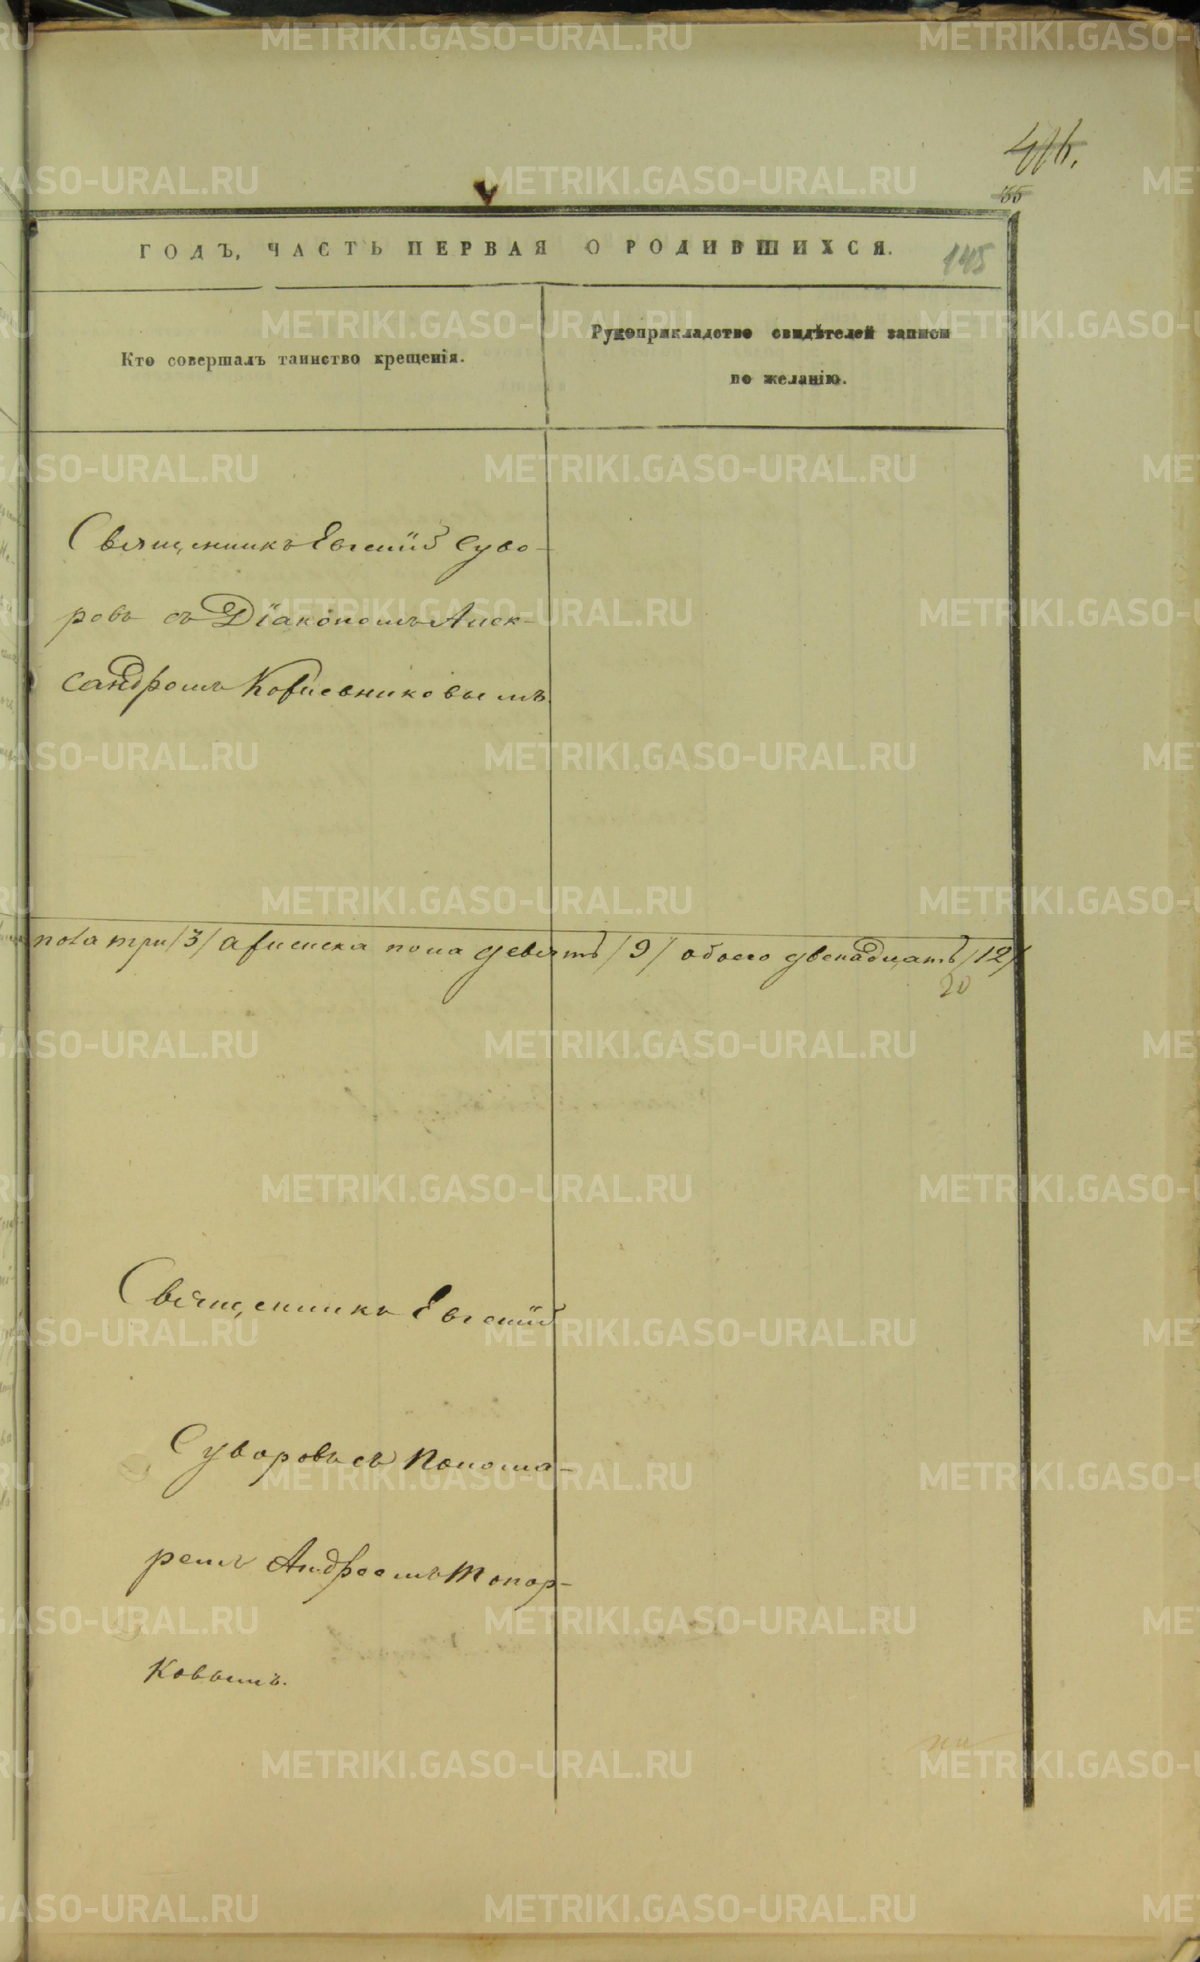 416.
35
ГОДЪ, ЧАСТЬ ПЕРВАЯ О РОДИВШИХСЯ.
145
Кто совершалъ таинство крещенія.
Рукоприкладство свидѣтелей записи
по желанію.
Священникъ Евгеній Суво-
ровъ съ Діакономъ Алек-
сандромъ Кожевниковымъ
пола три /3/ а женска пола девять /9/ обоего двенадцать /12/
20
Священникъ Евгеній
Суворовъ съ Понома-
ремъ Андреемъ Топор-
ковымъ.
METRIKI.GASO-URAL.RU